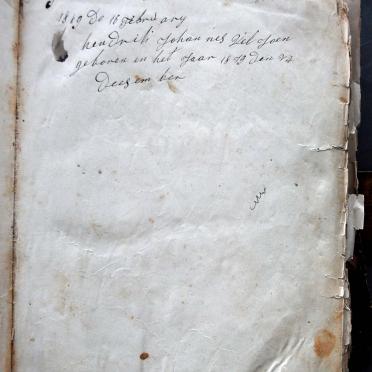 1819 De 16 febri ary
hendrik Johan nes
geboren in het Jaar 18 19 Den
Dees em ber